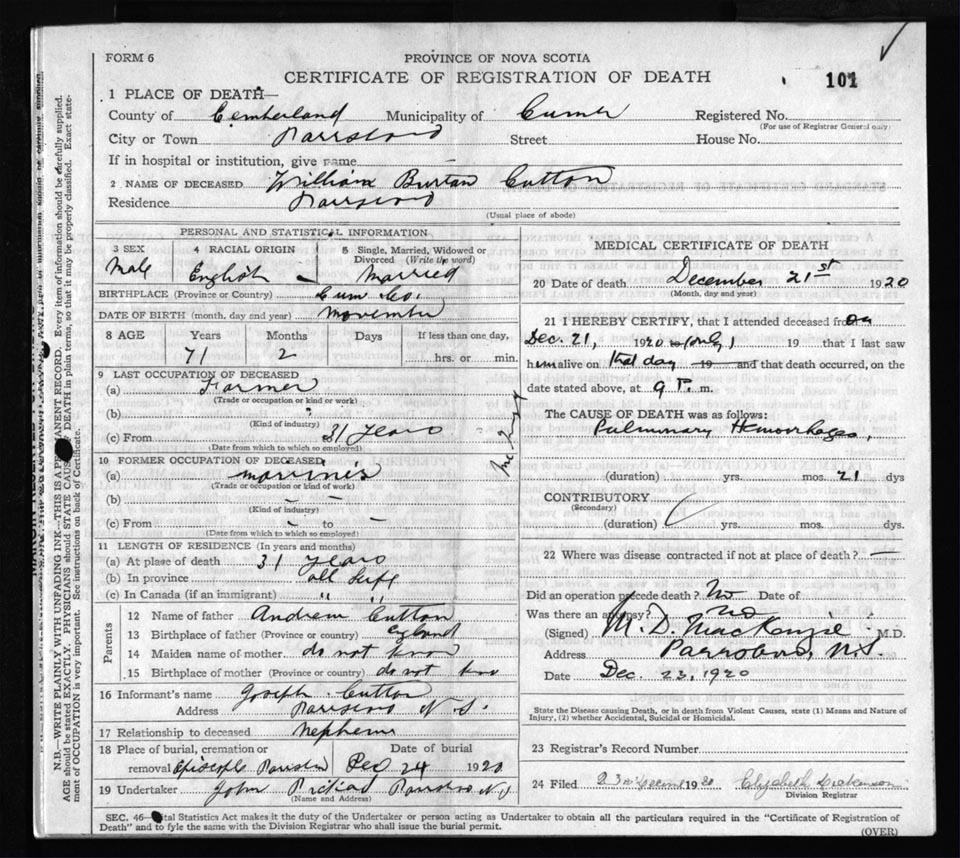 FORM 6
PROVINCE OF NOVA SCOTIA
CERTIFICATE OF REGISTRATION OF DEATH
101
1 PLACE OF DEATH—
County of Cemberland Municipality of Cumb Registered No.
(For use of Registrar General only)
City or Town Parrsboro Street House No.
If in hospital or institution, give name —
2 NAME OF DECEASED William Burton Cutton
Residence Parrsboro
(Usual place of abode)
PERSONAL AND STATISTICAL INFORMATION
3 SEX Male
4 RACIAL ORIGIN English
5 Single, Married, Widowed or Divorced (Write the word) Married
BIRTHPLACE (Province or Country) Cum Co.
DATE OF BIRTH (month, day and year) November
8 AGE Years Months Days If less than one day,
71 2 hrs. or min.
9 LAST OCCUPATION OF DECEASED
(a) Farmer
(Trade or occupation or kind or work)
(b) "
(Kind of industry)
(c) From 31 years
(Date from which to which so employed)
10 FORMER OCCUPATION OF DECEASED
(a)
(Trade or occupation or kind of work)
(b) — —
(Kind of industry)
(c) From — to —
(Date from which to which so employed)
11 LENGTH OF RESIDENCE (In years and months)
(a) At place of death 31 years
(b) In province all Life
(c) In Canada (if an immigrant) " "
Parents
12 Name of father Andrew Cutton
13 Birthplace of father (Province or country) England
14 Maiden name of mother do not know
15 Birthplace of mother (Province or country) do not kno
16 Informant's name Joseph Cutton
Address Parrsboro N.S.
17 Relationship to deceased Nephew
18 Place of burial, cremation or removal Date of burial
Parrsboro Dec 24 1920
19 Undertaker John Parrsboro N.S
(Name and Address)
MEDICAL CERTIFICATE OF DEATH
20 Date of death December 21st 1920
(Month, day and year)
21 I HEREBY CERTIFY, that I attended deceased from on
Dec. 21, 1920 to (only) 19 that I last saw
him alive on that day 19 and that death occurred, on the
date stated above, at 9 P. m.
The CAUSE OF DEATH was as follows:
Pulmonary Hemorrhages.
(duration) yrs. mos. 21 dys
CONTRIBUTORY
(Secondary)
(duration) yrs. mos. dys.
22 Where was disease contracted if not at place of death? —
Did an operation precede death? No Date of
Was there an autopsy? No
(Signed) M. D. MacKenzie M.D.
Address Parrsboro, N.S.
Date Dec. 23, 1920
State the Disease causing Death, or in death from Violent Causes, state (1) Means and Nature of
Injury, (2) whether Accidental, Suicidal or Homicidal.
23 Registrar's Record Number
24 Filed 23 1920 Elizabeth
Division Registrar
SEC. 46— Vital Statistics Act makes it the duty of the Undertaker or person acting as Undertaker to obtain all the particulars required in the "Certificate of Registration of
Death" and to fyle the same with the Division Registrar who shall issue the burial permit.
(OVER)
N.B.—WRITE PLAINLY WITH UNFADING INK—THIS IS A PERMANENT RECORD. Every item of information should be carefully supplied.
AGE should be stated EXACTLY. PHYSICIANS should STATE CAUSE OF DEATH in plain terms, so that it may be properly classified. Exact state-
ment of OCCUPATION is very important. See instructions on back of Certificate.